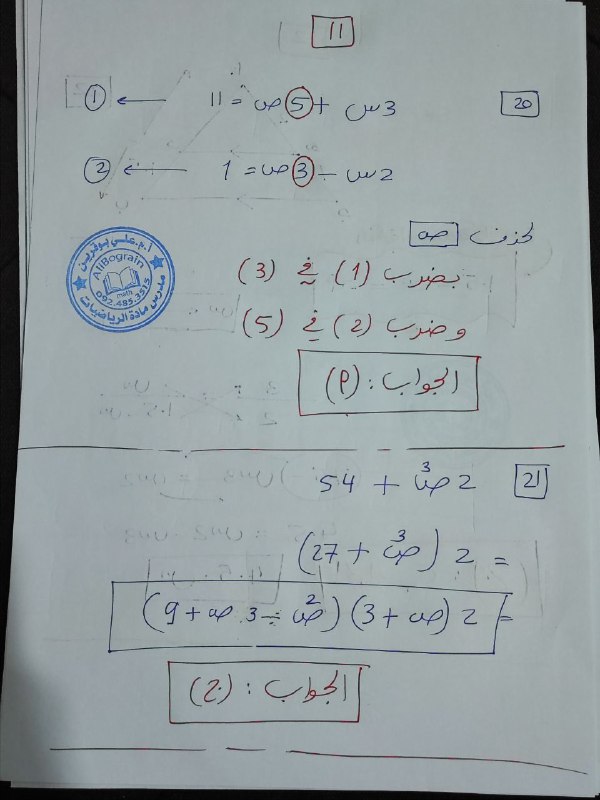 11
20
3س + 5ص = 11 ← 1
2س - 3ص = 1 ← 2
لحذف ص
بضرب (1) في (3)
وضرب (2) في (5)
الجواب: (P)
أ.م.علي بوقرين
AliBograin
math
092.485.3515
مدرس مادة الرياضيات
21
2ص³ + 54
= 2 (ص³ + 27)
= 2 (ص + 3) (ص² - 3ص + 9)
الجواب: (ج)